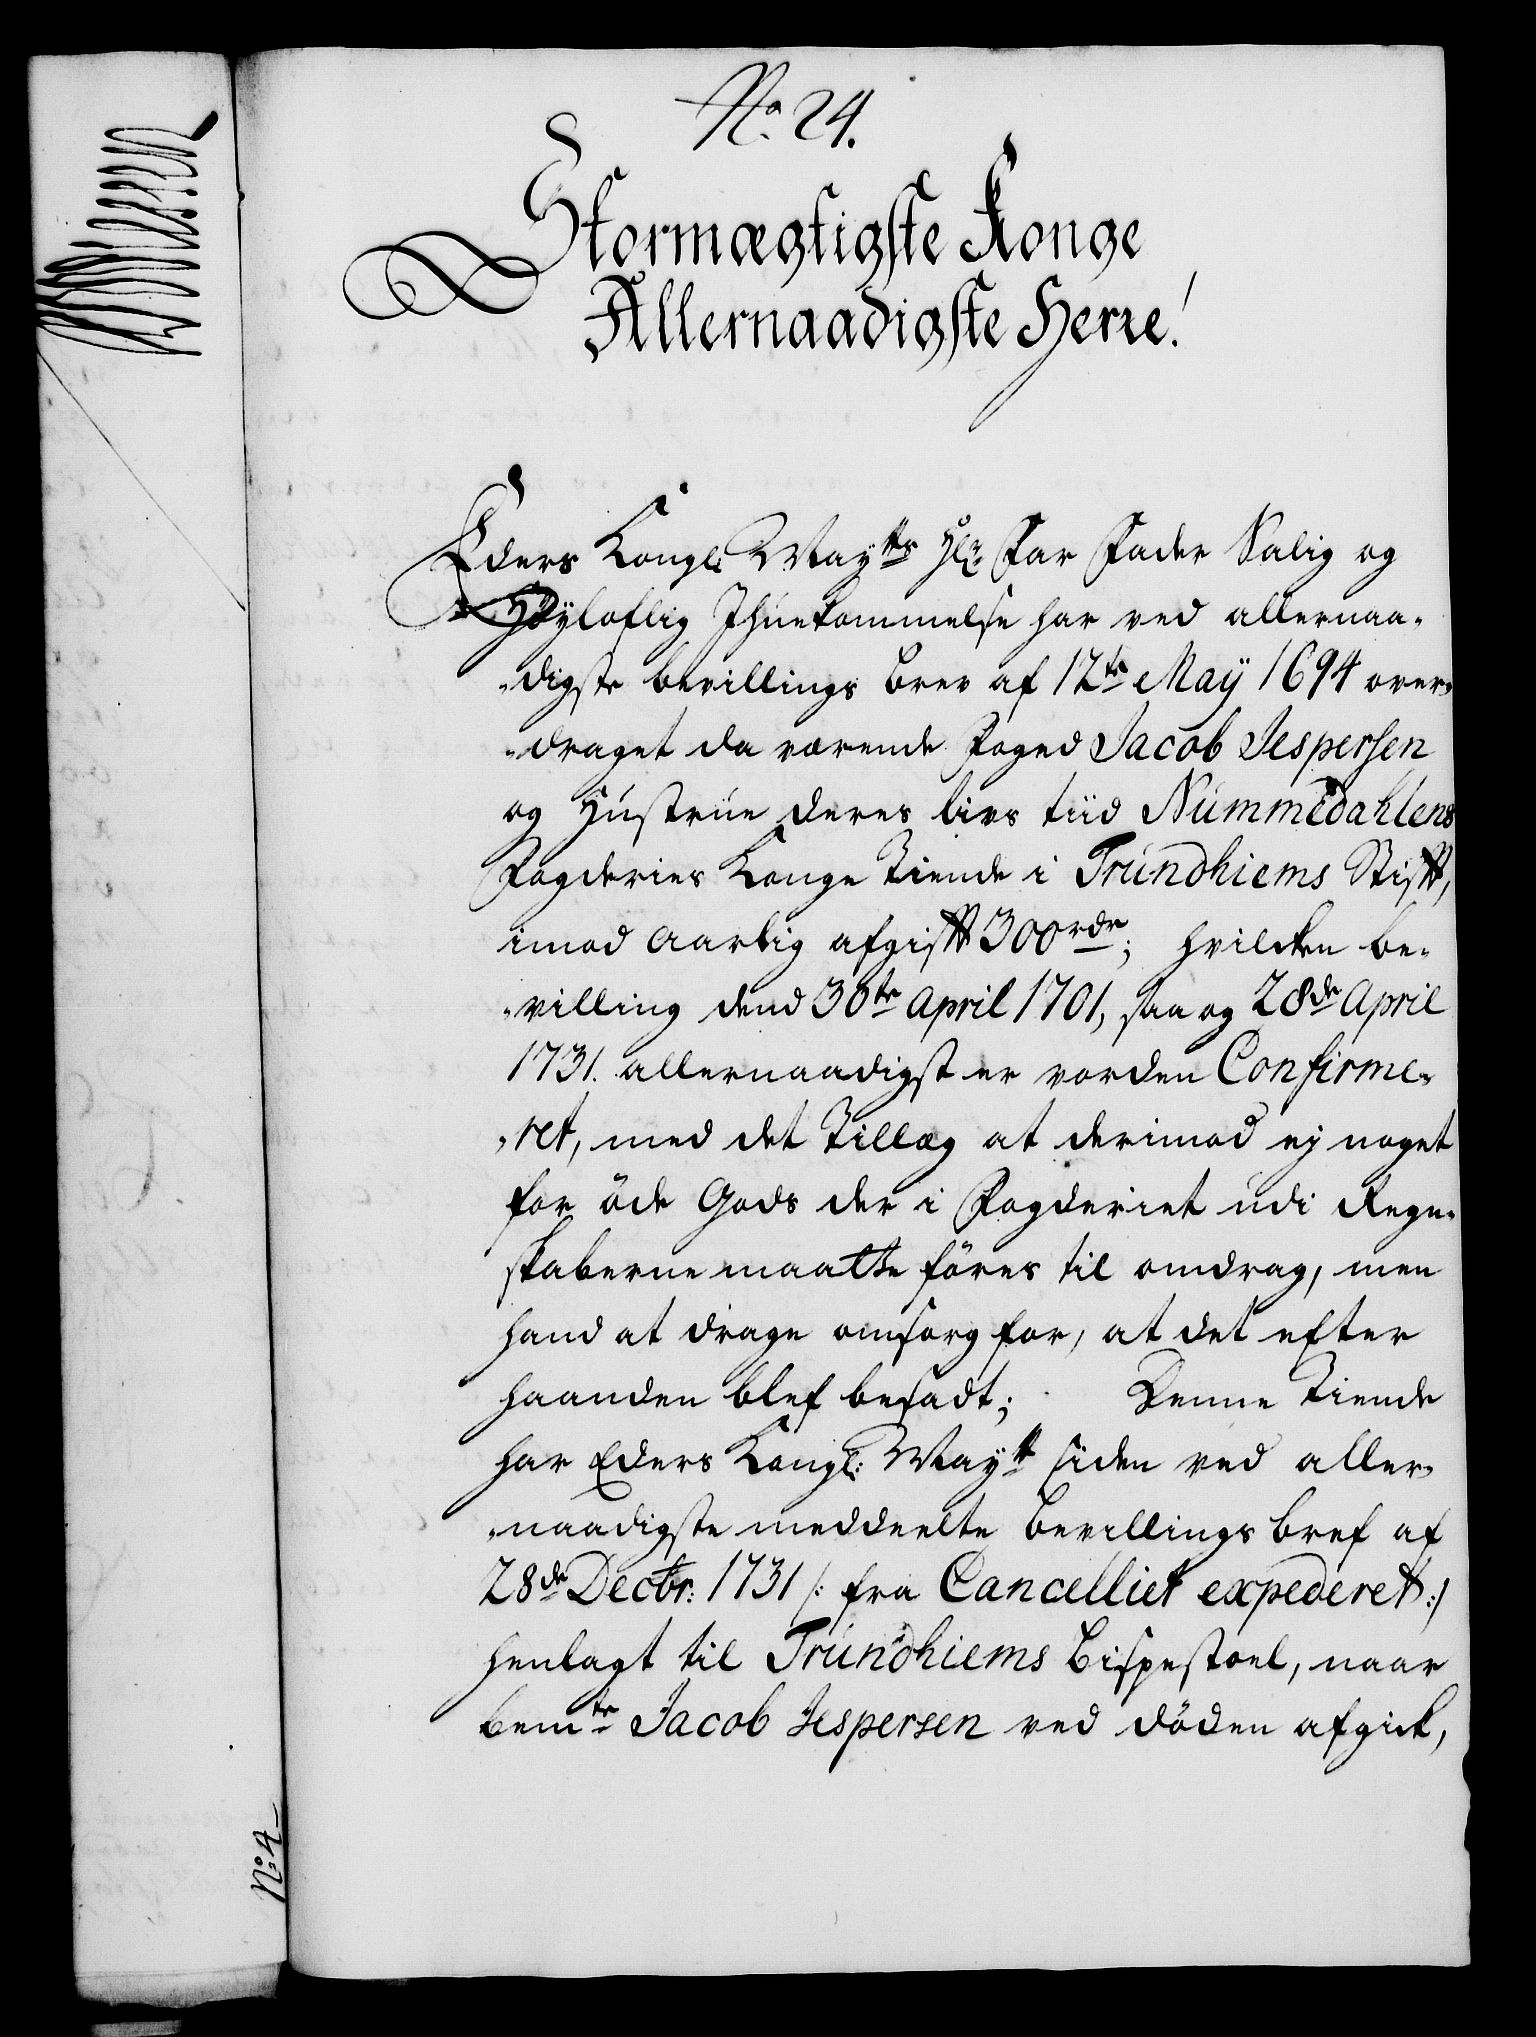 No. 24.
Stormægtigste Konge
Allernaadigste Herre!
Eders Kongl: Maytts Hr: Far Fader Salig og
Høyloflig Ihuekommelse har ved allernaa-
-digste bevillings brev af 12te May 1694 over-
-draget da værende Foged Jacob Jespersen
og Hustrüe deres livs tiid Nummedahlens
Fogderies Konge Tiende i Trundhiems Stifft,
imod aarlig afgifft 300rdr; hvilcken be-
-villing dend 30te April 1701, saa og 28de April
1731. allernaadigst er vorden Confirme-
-ret, med det Tillæg at derimod ej noget
for öde Gods der i Fogderiet udi Regn-
skaberne maatte föres til omdrag, men
hand at drage omsorg for, at det efter
haanden blef besadt; Denne Tiende
har Eders Kongl: Maytt siden ved aller-
-naadigste meddeelte bevillings bref af
28de Decbr: 1731 /: fra Cancelliet expederet :/
henlagt til Trundhiems bispestoel, naar
bemte Jacob Jespersen ved döden afgick,
No: 4